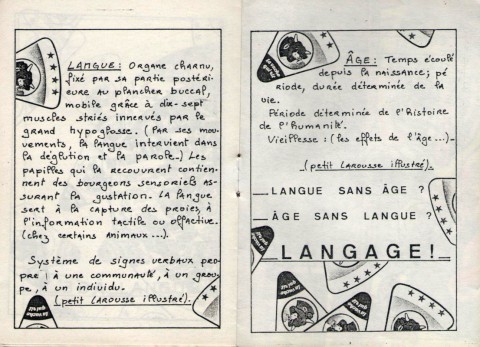 LANGUE: Organe charnu,
fixé par sa partie postéri-
eure au plancher buccal,
mobile grâce à dix-sept
muscles striés innervés par le
grand hypoglosse. (Par ses mou-
vements, la langue intervient dans
la déglution et la parole..) Les
papilles qui la recouvrent contien-
nent des bourgeons sensoriels as-
surant la gustation. La langue
sert à la capture des proies, à
l'information tactile ou olfactive.
(chez certains animaux...).
Système de signes verbaux pro
pre : à une communauté, à un grou
pe, à un individu.
(petit Larousse illustré).
La vache
qui rit
ÂGE: Temps écoulé
depuis la naissance; pé
riode, durée déterminée de la
vie.
Période déterminée de l'histoire
de l'humanité.
Vieillesse : (les effets de l'âge...).
(petit Larousse illustré).
LANGUE SANS ÂGE ?
ÂGE SANS LANGUE ?
LANGAGE!
La vache
qui rit